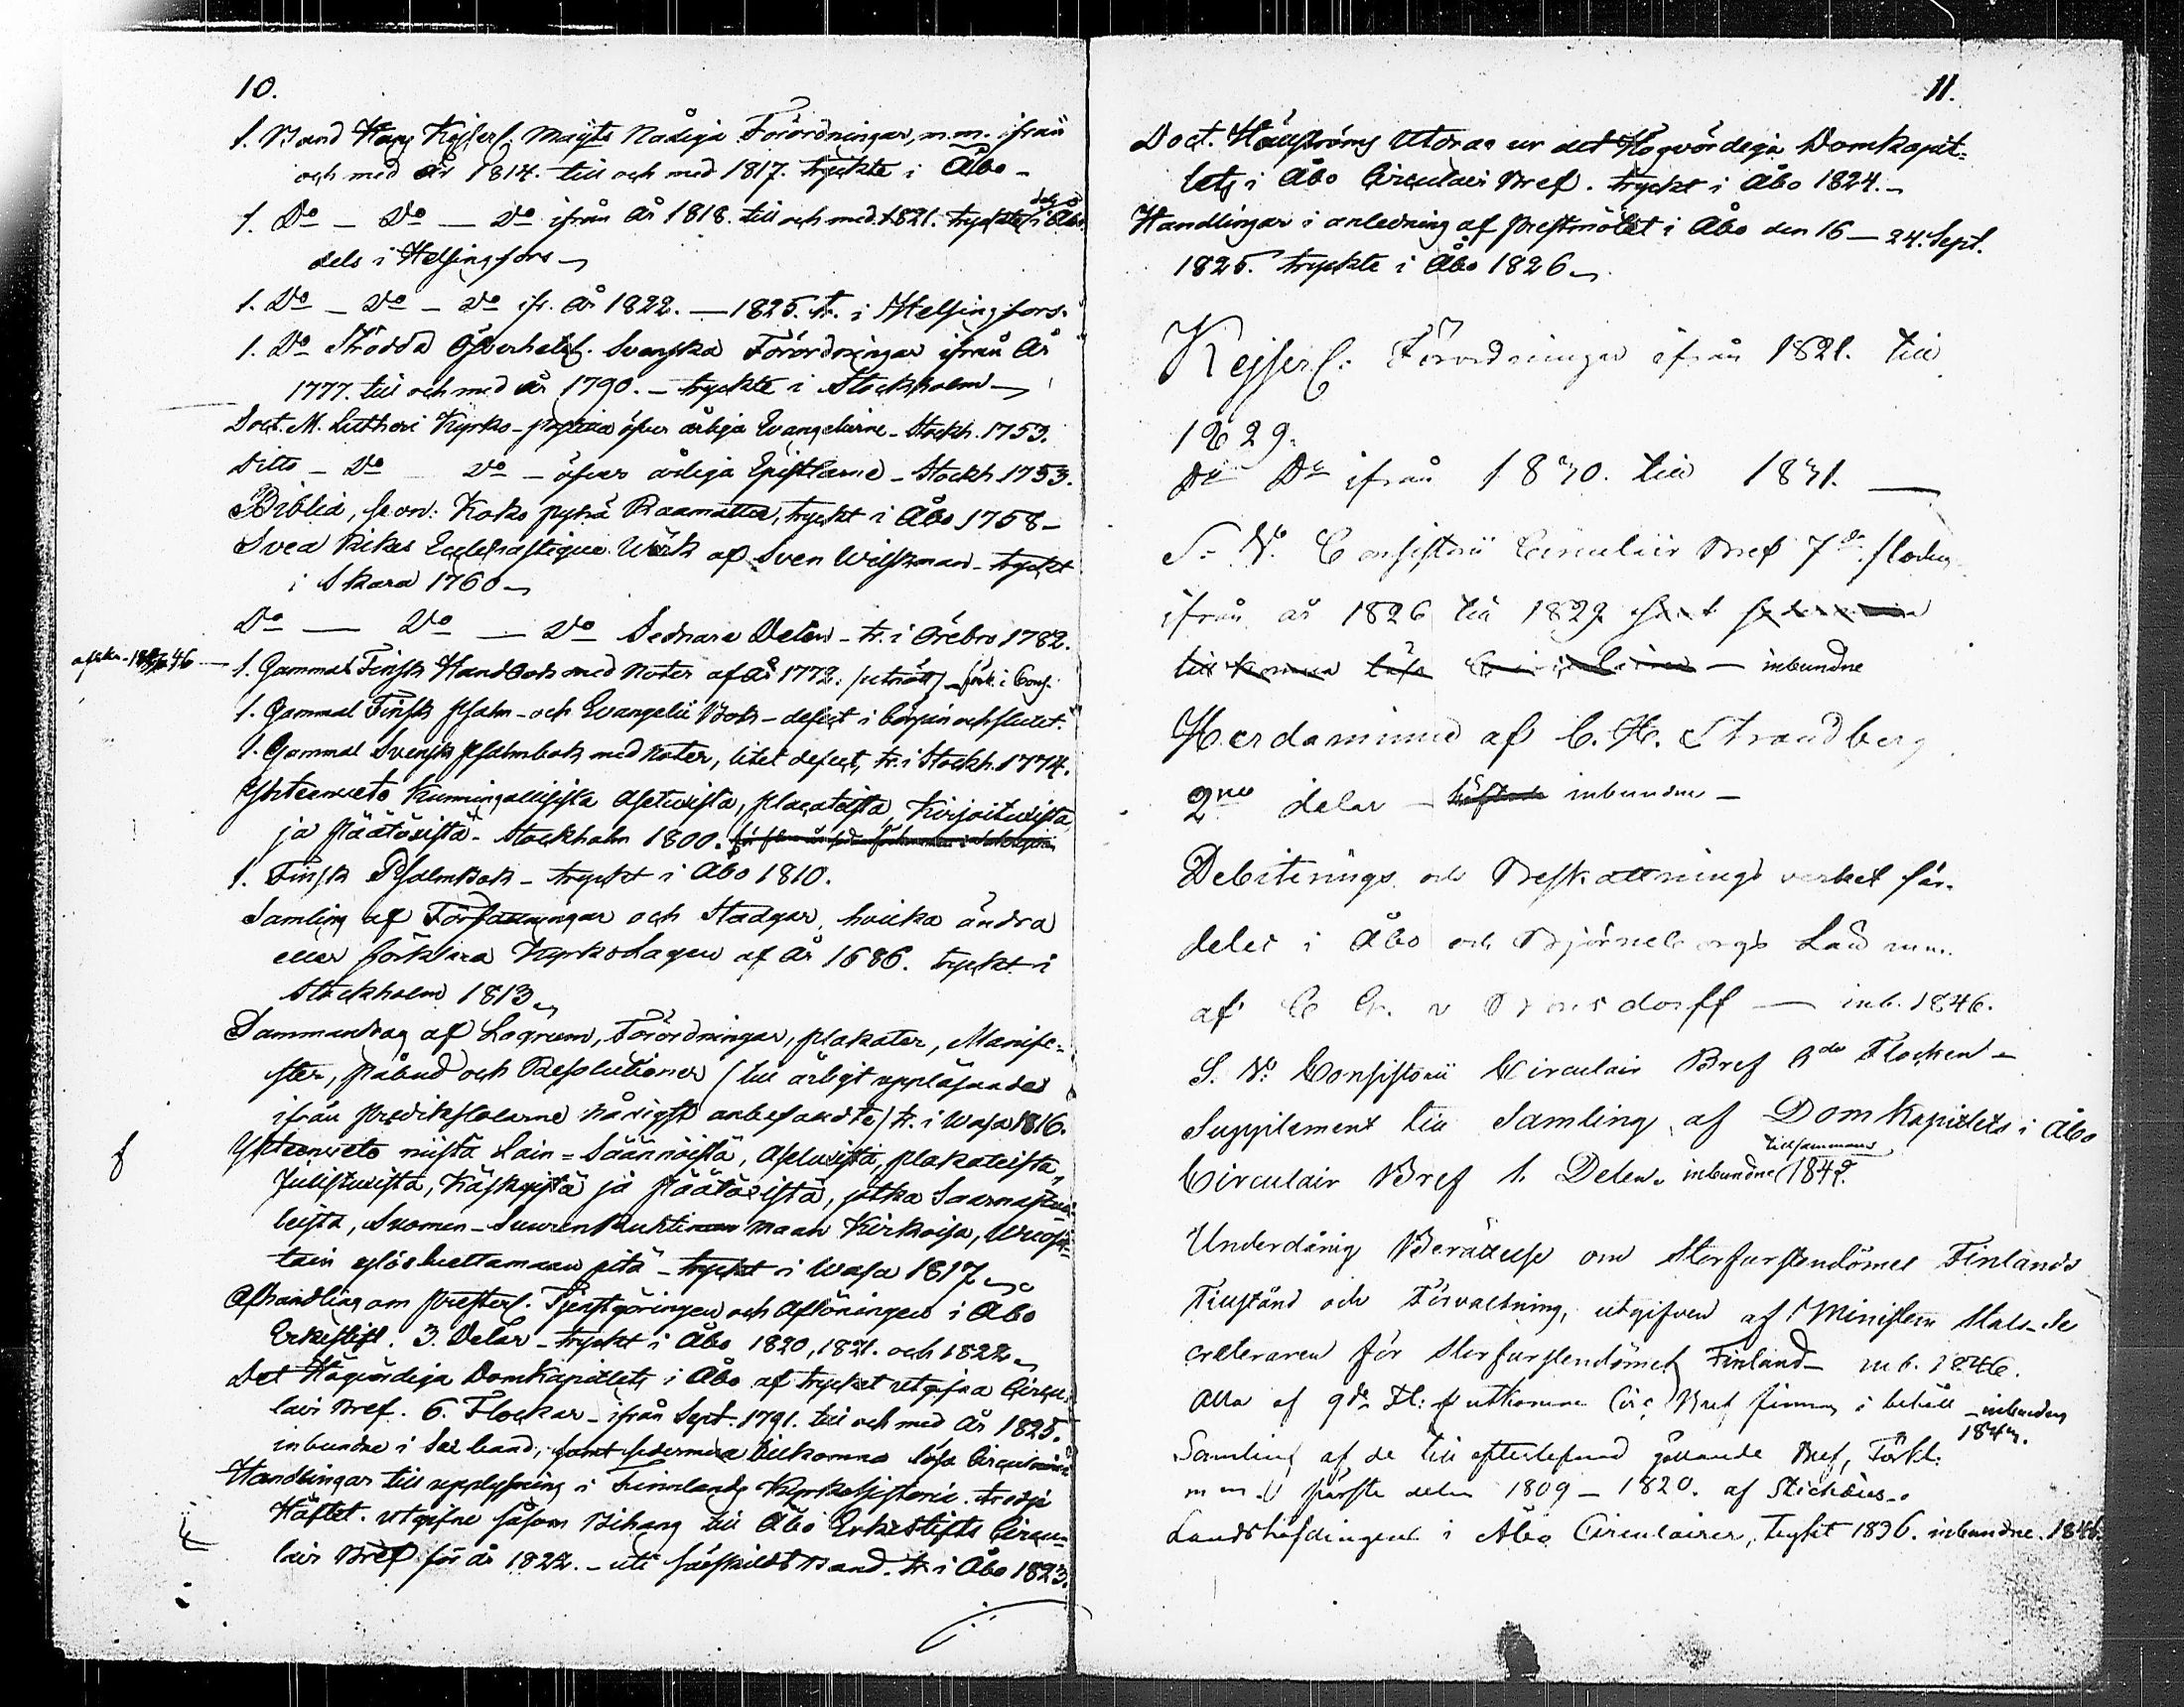 10.
1. Band Hans Kejserl. Mayts Nådiga Förordningar, m.m. ifrån
och med År 1814. till och med 1817. tryckte i Åbo -
1. Do - Do - Do ifrån År 1818. till och med 1821. tryckte dels i Åbo
dels i Helsingfors -
1. Do - Do - Do ifr. År 1822. - 1825. tr. i Helsingfors.
1. Do Strödda Svenska Förordningar ifrån År
1777. till och med år 1790. - tryckte i Stockholm -
Doct. M. Lutheri Kyrko-postilla öfver årliga Evangelierne - Stockh. 1753.
Ditto - Do Do - öfver årliga Epistlarne - Stockh. 1753.
Biblia, se on: Koko pyhä Raamattu, tryckt i Åbo 1758 -
Svea Rikes Ecclesiastique Wärk af Sven Wilskman - tryckt
i Skara 1760 -
Do - Do - Do Sednare Delen - tr. i Örebro 1782.
1. Gammal Finsk Handbok med Noter af År 1772. (utnött)
1. Gammal Finsk Psalm- och Evangelii Bok - defect i början och slutet.
1. Gammal Svensk Psalmbok med Noter, litet defect, tr. i Stockh. 1774.
Yhteenveto Kuningallisista Asetuxista, Placateista, Kirjoituxista
ja Päätöxistä - Stockholm 1800.
1. Finsk Psalmbok - tryckt i Åbo 1810.
Samling af Författningar och Stadgar, hvilka ändra
eller förklara Kyrkolagen af År 1686. tryckt i
Stockholm 1813 -
Sammandrag af Lagrum, Förordningar, Plakater, Manife-
ster, Påbud och Resolutioner (till årligt uppläsande
ifrån Predikstolarne nådigst anbefallte) tr. i Wasa 1816.
Yhteenveto niistä Lain-Säännöistä, Asetuxista, Plakateista,
Julistuxista, Käskyistä ja Päätöxistä, jotka Saarnastuo-
leista, Suomen-Suuren Ruhtinan Maan Kirkoisa, Wuosit-
tain ylösluettaman pitä - tryckt i Wasa 1817 -
Afhandling om Presterl. Tjenstgöringen och Aflöningen i Åbo
Erkestift. 3. Delar - tryckt i Åbo 1820, 1821. och 1822 -
Det Högvördiga Domkapitlets i Åbo af trycket utgifna Circu-
lair Bref. 6. Flockar - ifrån Sept. 1791. till och med År 1825.
inbundne i Sex band, samt sedermera tillkomna lösa Circulairer
Handlingar till upplysning i Finnlands Kyrkohistorie. tredje
Häftet. utgifne såsom Bihang till Åbo Erkestifts Circu-
lair Bref för år 1822. - uti särskildt Band. tr. i Åbo 1823.
11.
Doct. Utdrag ur det Högvördiga Domkapit-
lets i Åbo Circulair Bref. tryckt i Åbo 1824. -
Handlingar i anledning af Prestmötet i Åbo den 16 - 24. Sept.
1825. tryckte i Åbo 1826 -
Kejserl. Förordningar ifrån 1821. till
1829.
Do Do ifrån 1830. till 1831. -
S. V. Consistorii Circulair Bref 7de flocken
ifrån år 1826 till 1829 samt sedermera
till komna lösa Circulairer - inbundne
Herdaminne af C. H. Strandberg
2ne delar - häftade inbundne -
Debiterings och Beskattnings verket för-
deles i Åbo och Björneborgs Län m.m.
af inb. 1846.
S. V. Consistorii Circulair Bref 8de Flocken -
Supplement till Samling af Domkapitlets i Åbo
Circulair Bref 1. Delen. tillsammans inbundne 1842.
Underdånig Berättelse om Storfurstendömet Finlands
Tillstånd och Förvaltning, utgifven af Ministern Stats-Se
creteraren för Storfurstendömet Finland - inb. 1846.
Alla af 9de Fl: utkomne Circ Bref finnas i behåll - inbundne
184
Samling af de till efterlefnad gällande Bref, Förkl.
m.m. förste delen 1809 - 1820. af Stichæus -
Landshöfdingens i Åbo Circulairer, tryckt 1836. inbundne. 1846.